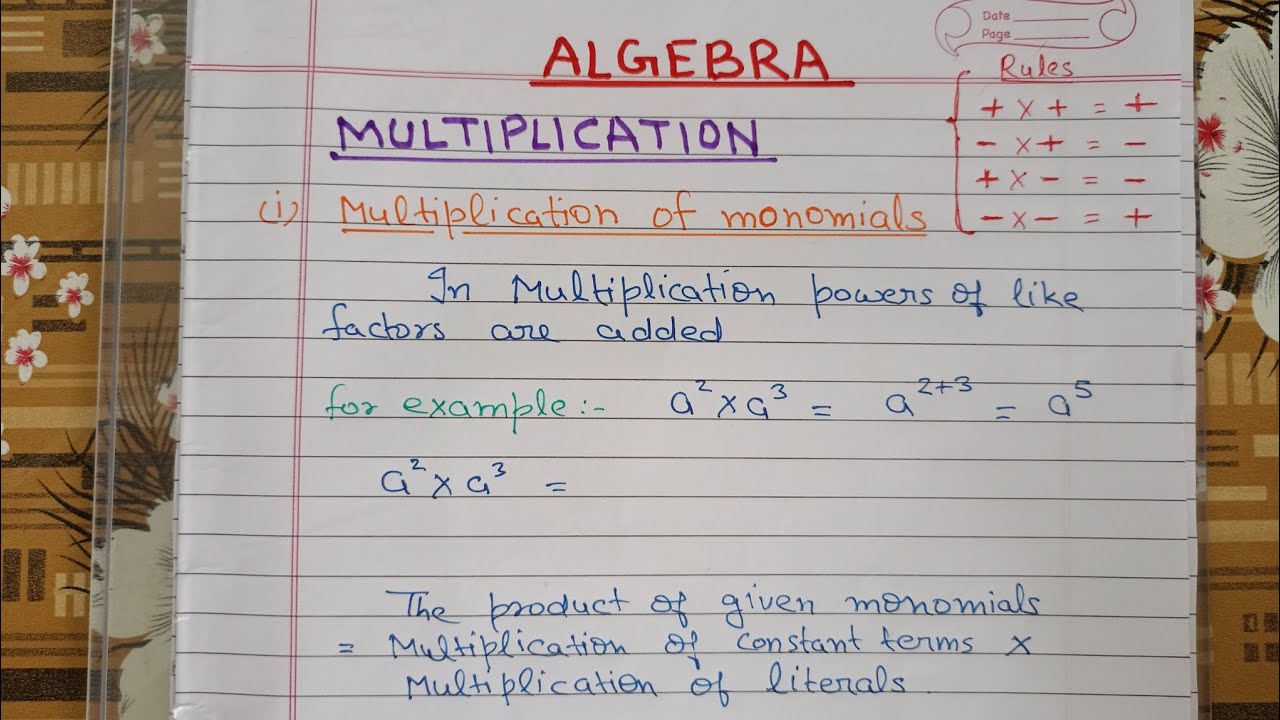 Date
Page
ALGEBRA
Rules
+ x + = +
- x + = -
+ x - = -
- x - = +
MULTIPLICATION
(i) Multiplication of monomials
In Multiplication powers of like
factors are added
for example:- a² x a³ = a²⁺³ = a⁵
a² x a³ =
The product of given monomials
= Multiplication of constant terms x
Multiplication of literals.